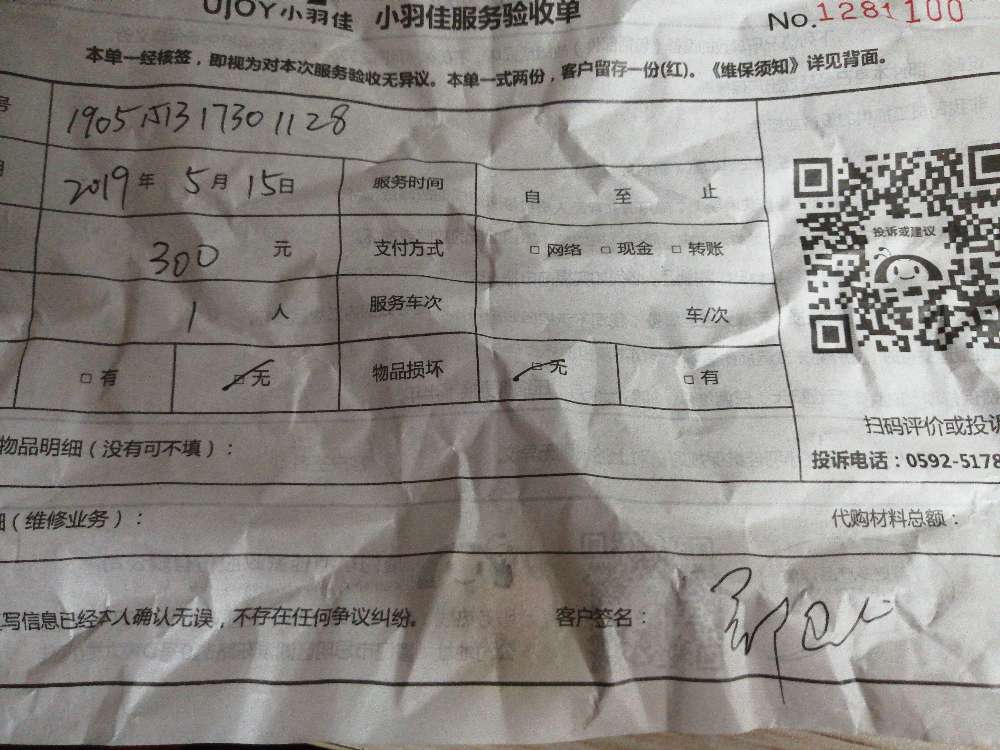 UJOY小羽佳 小羽佳服务验收单 No.1281100
本单一经核签，即视为对本次服务验收无异议。本单一式两份，客户留存一份(红)。《维保须知》详见背面。
号
2019年5月15日 服务时间 自 至 止
300 元 支付方式 □网络 □现金 □转账
1 人 服务车次 车/次
□有 □无 物品损坏 □无 □有
投诉或建议
物品明细（没有可不填）：
扫码评价或投诉
投诉电话：0592-5178
细（维修业务）： 代购材料总额：
写信息已经本人确认无误，不存在任何争议纠纷。 客户签名：